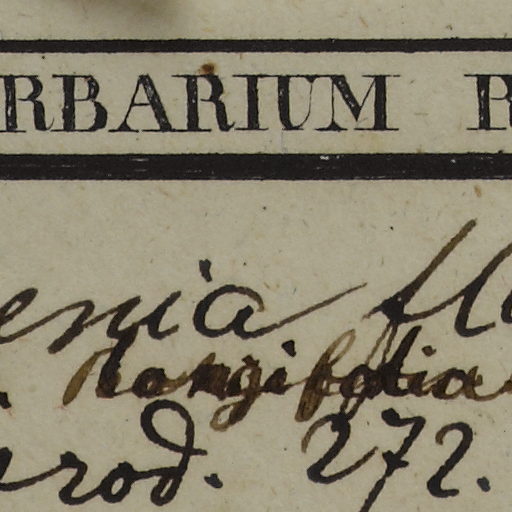 RBARIUM R
enia fl
longifolia
rod. 272.